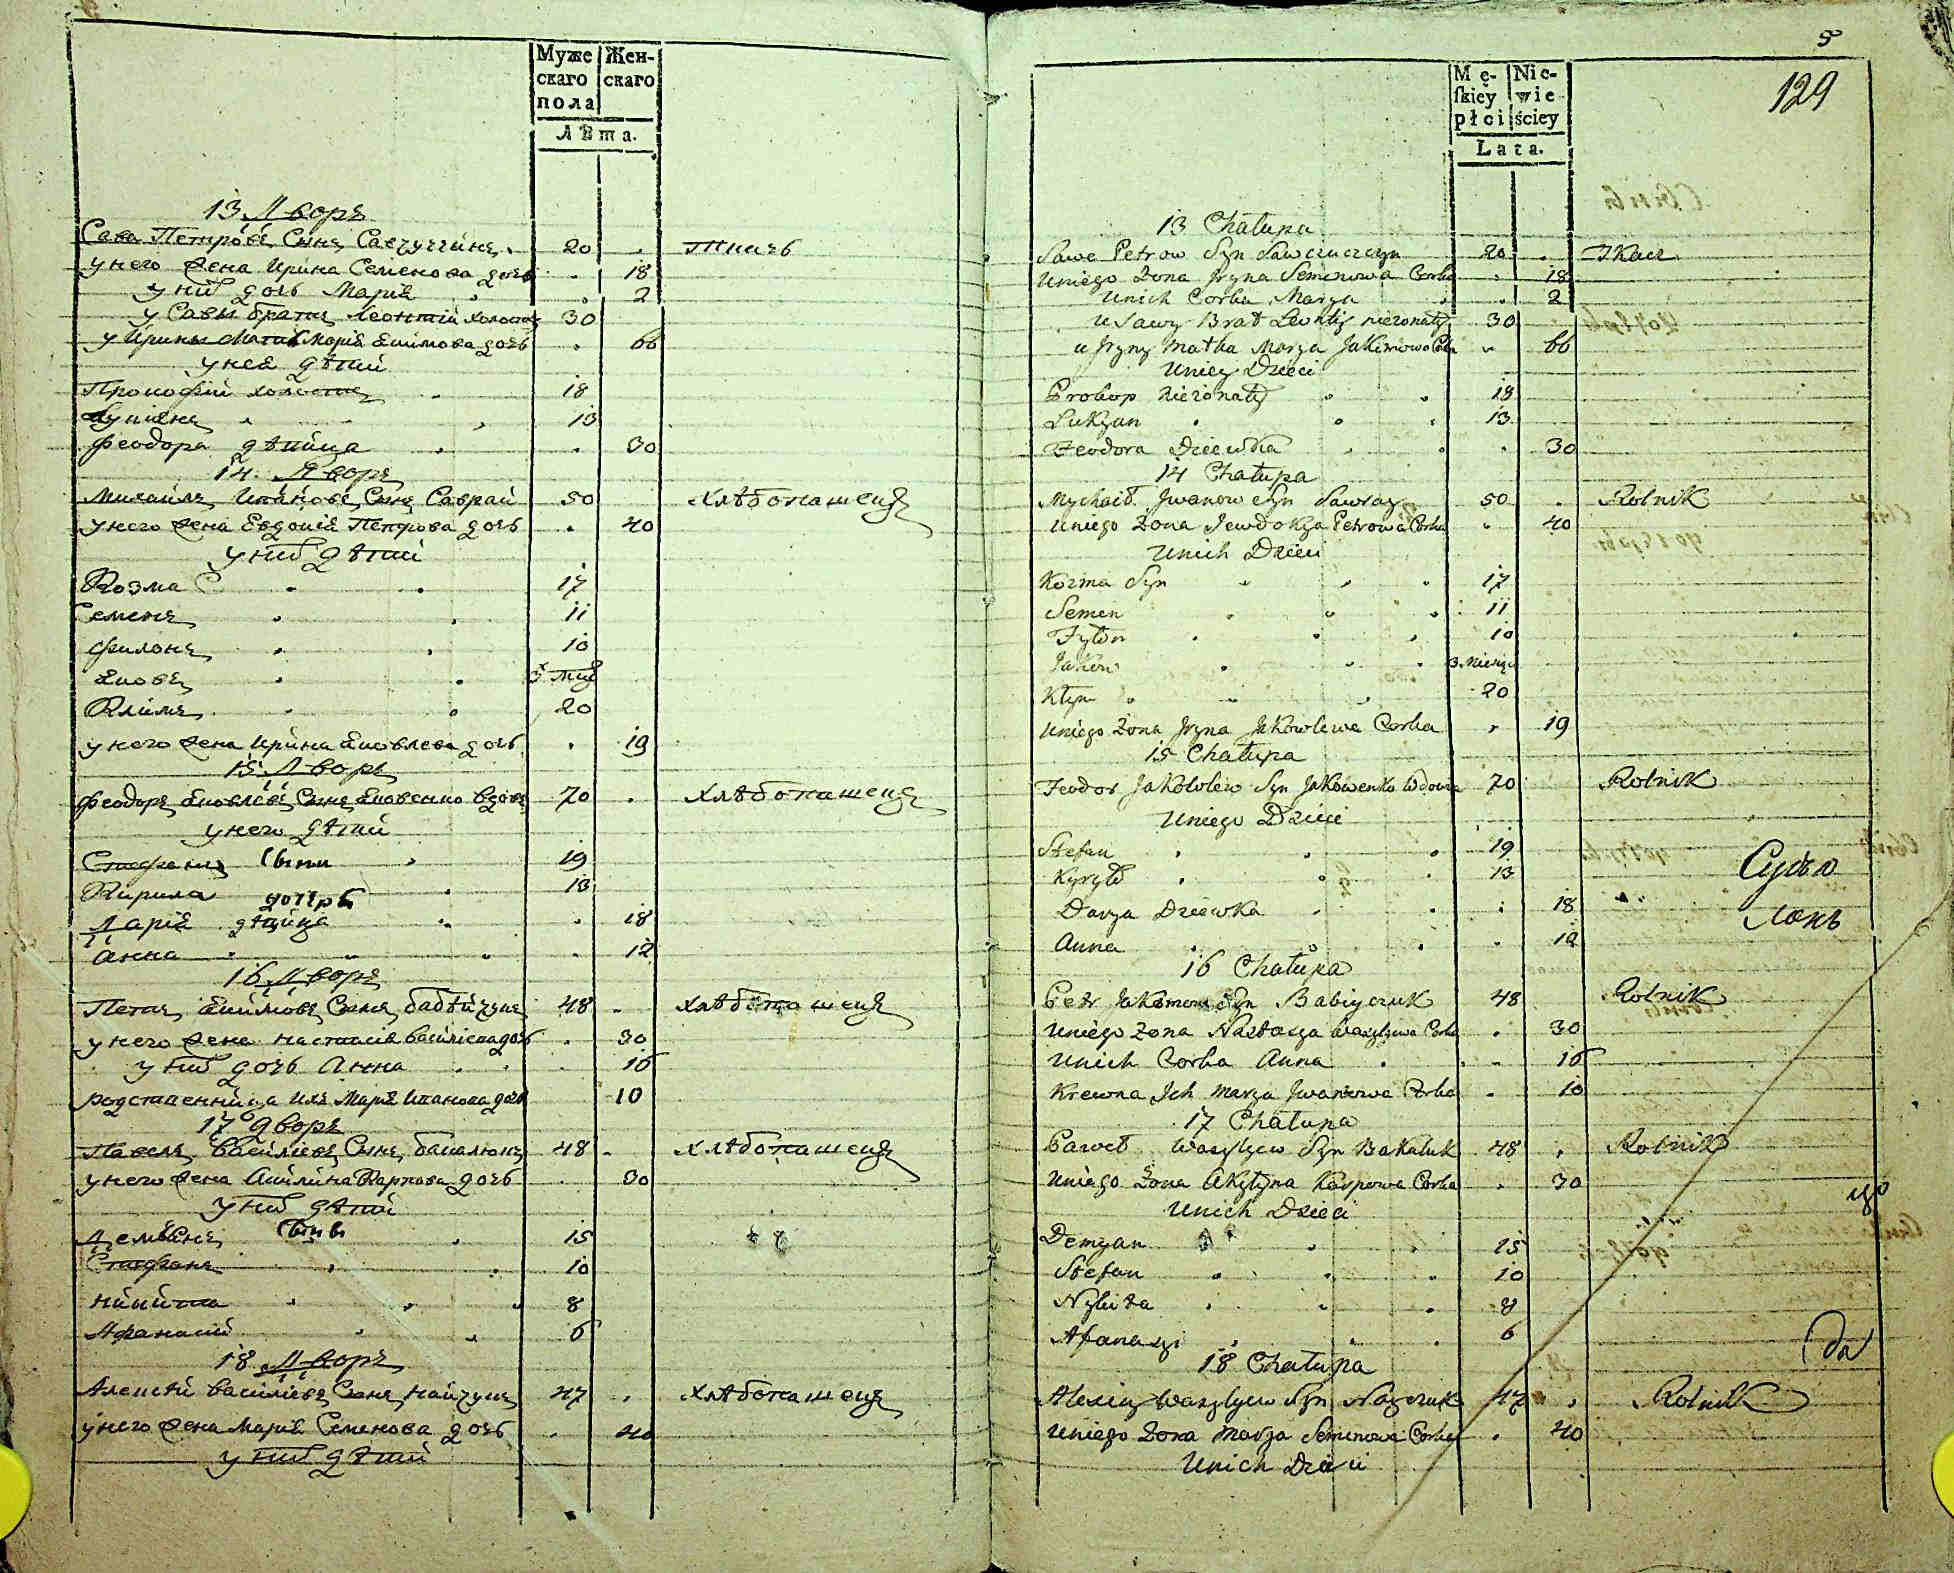 Муже Жен-
скаго скаго
пола
Лѣта.
13 Дворъ
Сава Петровъ Сынъ Савчуччинъ 20 Ткачъ
у него жена Ирина Семенова дочь 18
у них дочь Марія 2
у Савы братъ Леонтій холостъ 30
у Ирины Матка Марія Якимова дочь 66
у нея дѣти
Прокофій холостъ 18
Лукіянъ 13
Феодора дѣвица 30
14 Дворъ
Михайлъ Ивановъ Сынъ Саврай 50 хлѣбопашецъ
у него жена Евдокія Петрова дочь 40
у них дѣти
Козма С 17
Семенъ 11
Филонъ 10
Яковъ 3 мц
Климъ 20
у него жена Ирина Яковлева дочь 19
15 Дворъ
Феодоръ Яковлевъ Сынъ Яковенко вдовъ 70 хлѣбопашецъ
у него дѣти
Стефанъ Сыни 19
Кирила 13
дочерь
Дарія дѣвица 18
Анна 12
16 Дворъ
Петръ Якимовъ Сынъ бабѣйчукъ 48 хлѣбопашецъ
у него жена Настасія Василіева дочь 30
у них дочь Анна 16
родственница ихъ Марія Иванова дочь 10
17 Дворъ
Павелъ Василіевъ Сынъ бакалюкъ 48 хлѣбопашецъ
у него жена Акилина Карпова дочь 30
у них дѣти
Демьянъ Сынъ 15
Стефанъ 10
Никита 8
Афанасій 6
18 Дворъ
Алексѣй Василіевъ Сынъ Найчукъ 47 хлѣбопашецъ
у него жена Марія Семенова дочь 40
у них дѣти
5
129
Mę- Nie-
ſkiey wie
płci ściey
Lata.
13 Chałupa
Sawa Petrow Syn Sawczuczyn 20 Tkacz
Uniego Zona Jryna Semenowa Corka 18
Unich Corka Marya 2
u Sawy Brat Leontiy nieżonaty 30
u Jryny Matka Marya Jakimowa Corka 66
Uniey Dzieci
Prokop nieżonaty 18
Lukyan 13
Feodora Dziewka 30
14 Chałupa
Mychaił Jwanow Syn Sawray 50 Rolnik
Uniego Zona Jewdokya Petrowa Corka 40
Unich Dzieci
Kozma Syn 17
Semen 11
Fyłon 10
Jakow 3. miesiąc
Kłym 20
Uniego Zona Jryna Jakowlewa Corka 19
15 Chałupa
Feodor Jakowlew Syn Jakowenko Wdowiec 70 Rolnik
Uniego Dzieci
Stefan 19
Kyryło 13
Darya Dziewka 18
Anna 12
16 Chałupa
Petr Jakimow Syn Babiyczuk 48 Rolnik
Uniego Zona Nastasya Wasylewa Corka 30
Unich Corka Anna 16
Krewna Jch Marya Jwanowa Corka 10
17 Chałupa
Paweł Wasylyew Syn Bakaluk 48 Rolnik
Uniego Zona Akylyna Karpowa Corka 30
Unich Dzieci
Demyan 15
Stefan 10
Nykita 8
Afanasyi 6
18 Chałupa
Alexiey Wasylyew Syn Nayczuk 47 Rolnik
Uniego Zona Marya Semenowa Corka 40
Unich Dzieci